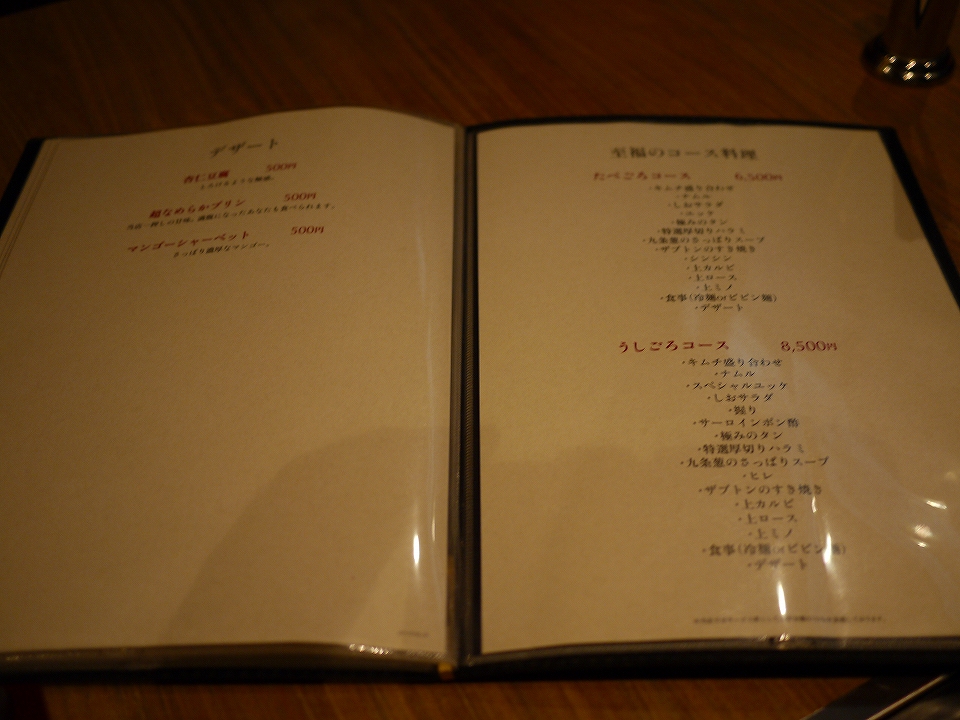 デザート
杏仁豆腐 500円
とろけるような触感。
超なめらかプリン 500円
当店一押しの甘味。満腹になったあなたも食べられます。
マンゴーシャーベット 500円
さっぱり濃厚なマンゴー。
至福のコース料理
たべごろコース 6,500円
・キムチ盛り合わせ
・ナムル
・しおサラダ
・ユッケ
・極みのタン
・特選厚切りハラミ
・九条葱のさっぱりスープ
・ザブトンのすき焼き
・シンシン
・上カルビ
・上ロース
・上ミノ
・食事(冷麺orビビン麺)
・デザート
うしごろコース 8,500円
・キムチ盛り合わせ
・ナムル
・スペシャルユッケ
・しおサラダ
・握り
・サーロインポン酢
・極みのタン
・特選厚切りハラミ
・九条葱のさっぱりスープ
・ヒレ
・ザブトンのすき焼き
・上カルビ
・上ロース
・上ミノ
・食事(冷麺orビビン麺)
・デザート